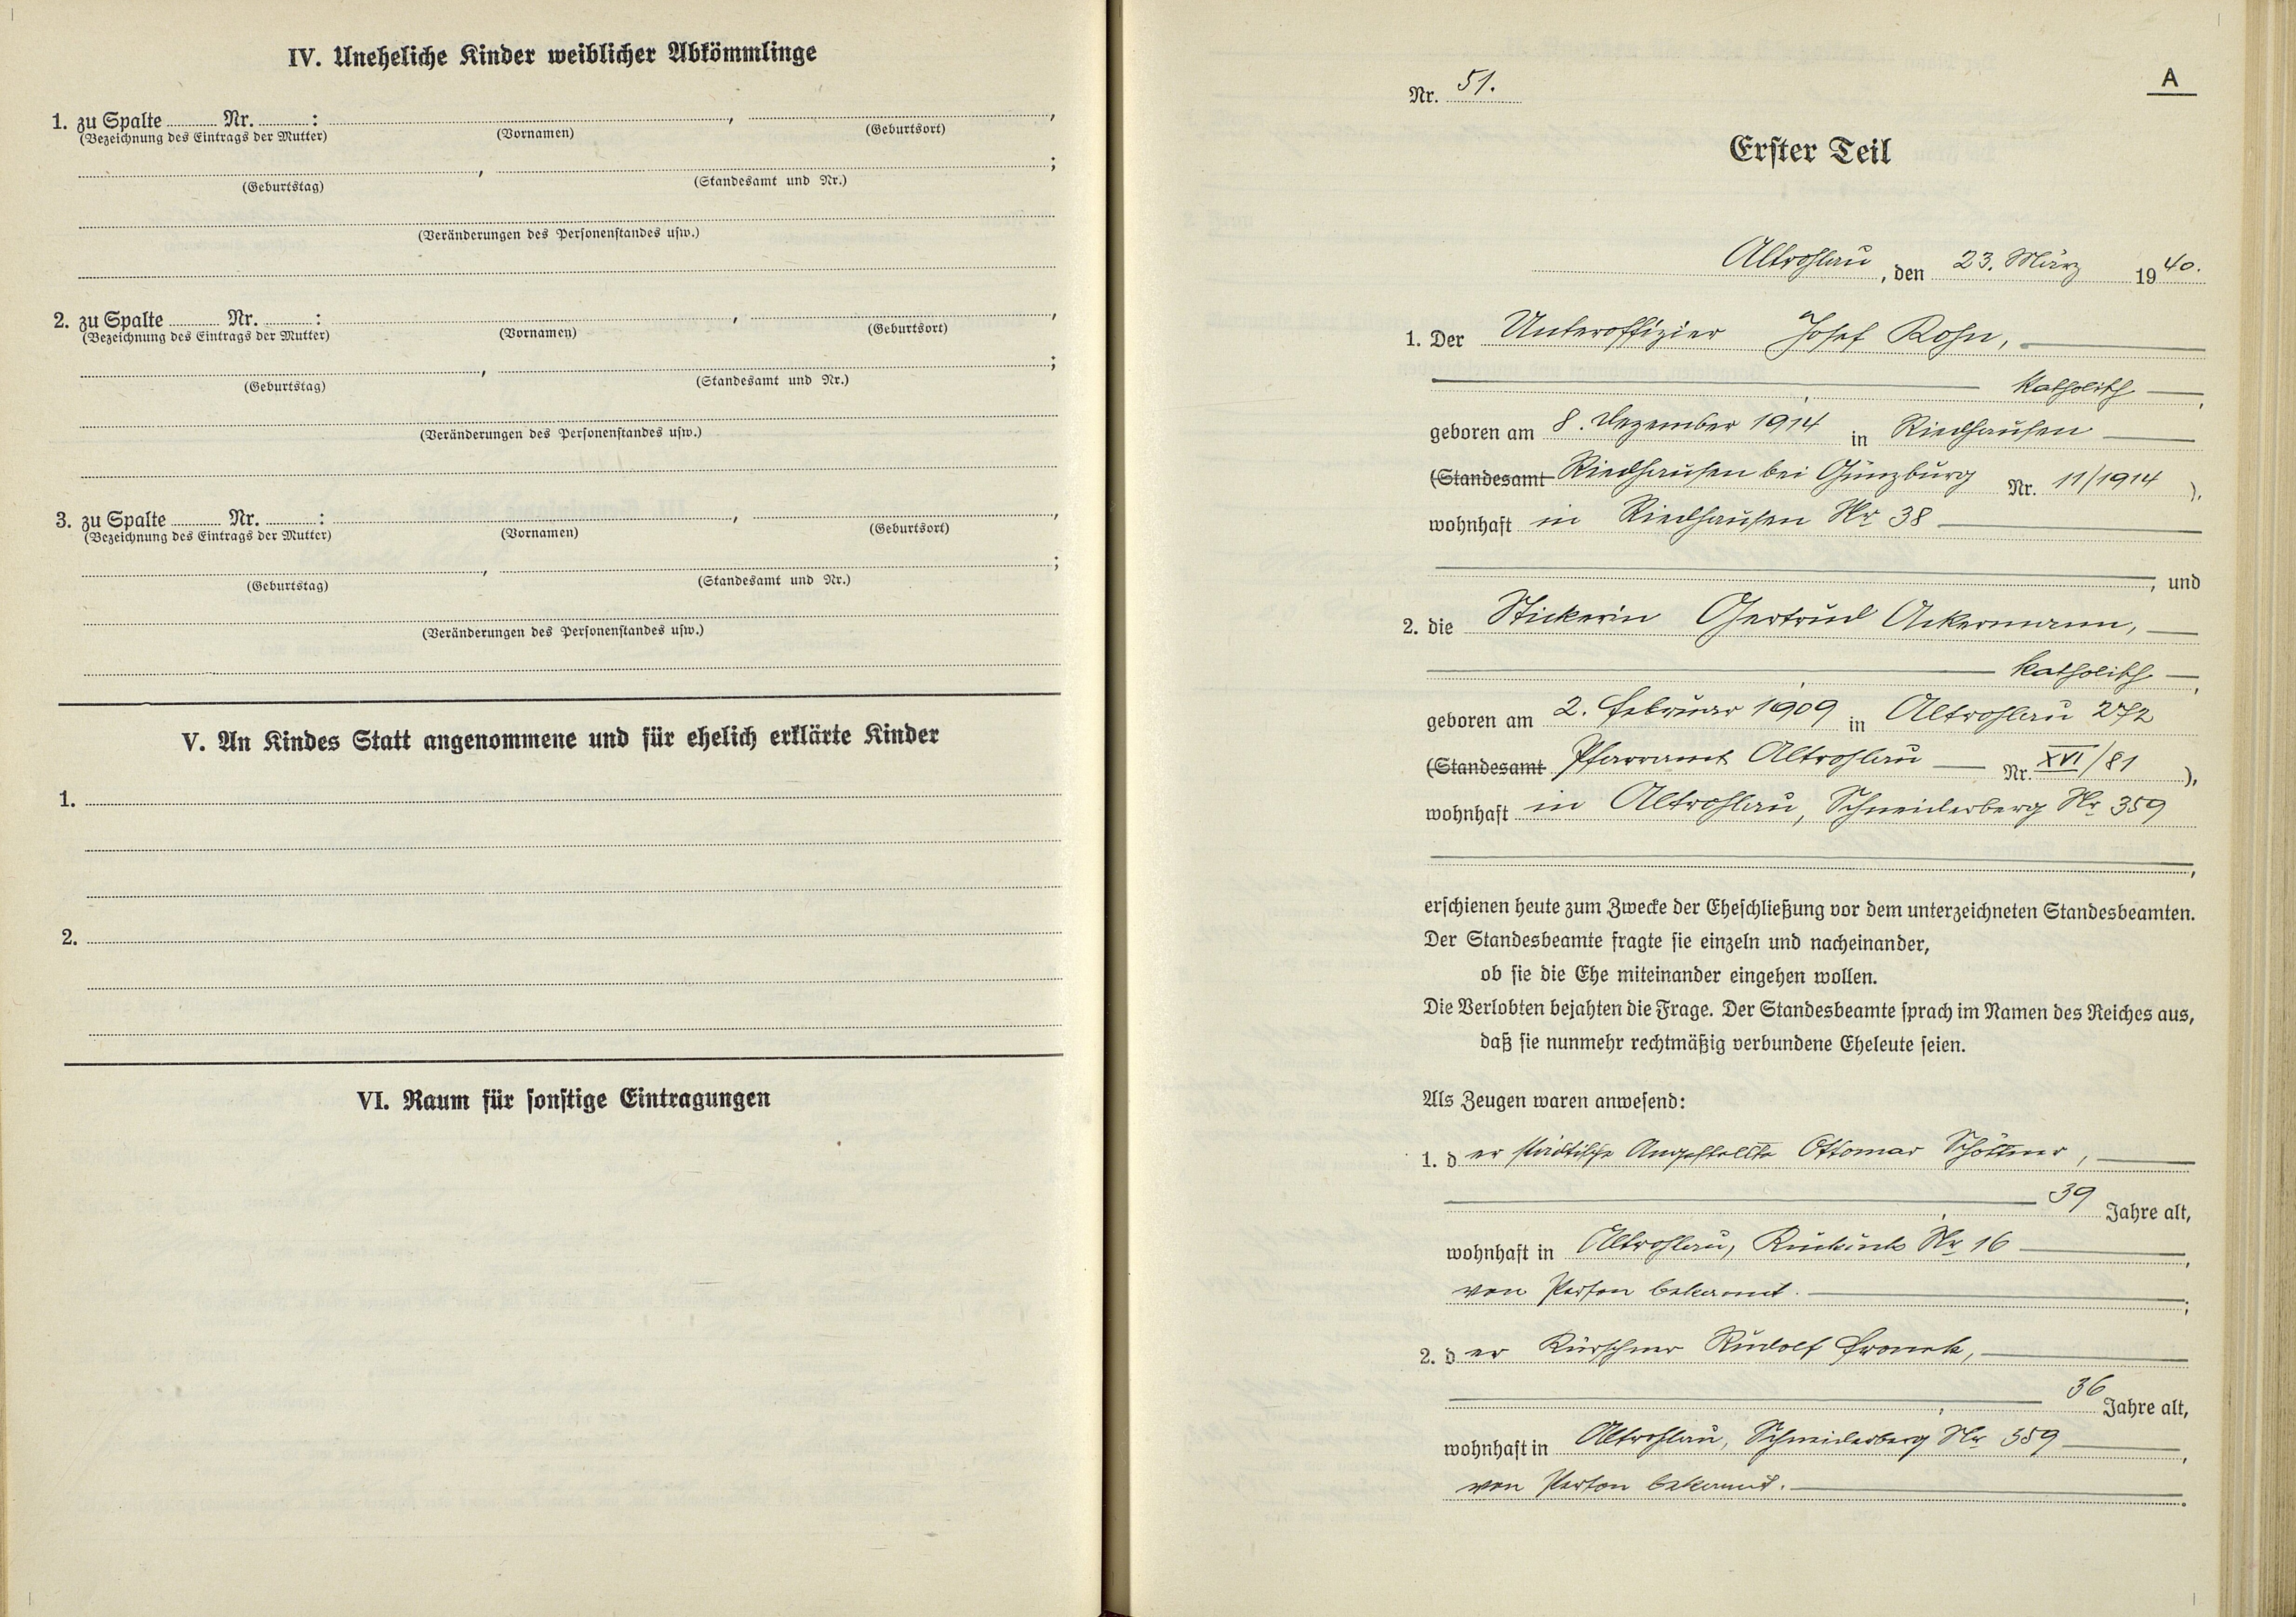 IV. Uneheliche Kinder weiblicher Abkömmlinge
1. zu Spalte ........ Nr. ........ : ........, ........,
(Bezeichnung des Eintrags der Mutter) (Vornamen) (Geburtsort)
........, ........;
(Geburtstag) (Standesamt und Nr.)
(Veränderungen des Personenstandes usw.)
2. zu Spalte ........ Nr. ........ : ........, ........,
(Bezeichnung des Eintrags der Mutter) (Vornamen) (Geburtsort)
........, ........;
(Geburtstag) (Standesamt und Nr.)
(Veränderungen des Personenstandes usw.)
3. zu Spalte ........ Nr. ........ : ........, ........,
(Bezeichnung des Eintrags der Mutter) (Vornamen) (Geburtsort)
........, ........;
(Geburtstag) (Standesamt und Nr.)
(Veränderungen des Personenstandes usw.)
V. An Kindes Statt angenommene und für ehelich erklärte Kinder
1.
2.
VI. Raum für sonstige Eintragungen
A
Nr. 51.
Erster Teil
Altrohlau, den 23. März 1940.
1. Der Unteroffizier Josef Rohn,
katholisch,
geboren am 8. Dezember 1914 in Riedhausen
(Standesamt Riedhausen bei Günzburg Nr. 11/1914),
wohnhaft in Riedhausen Nr 38
, und
2. die Stickerin Gertrud Ackermann,
katholisch,
geboren am 2. Februar 1909 in Altrohlau 272
(Standesamt Pfarramt Altrohlau Nr. XVI/81),
wohnhaft in Altrohlau, Schneiderberg Nr 359
,
erschienen heute zum Zwecke der Eheschließung vor dem unterzeichneten Standesbeamten.
Der Standesbeamte fragte sie einzeln und nacheinander,
ob sie die Ehe miteinander eingehen wollen.
Die Verlobten bejahten die Frage. Der Standesbeamte sprach im Namen des Reiches aus,
daß sie nunmehr rechtmäßig verbundene Eheleute seien.
Als Zeugen waren anwesend:
1. der städtische Angestellte Ottomar
39 Jahre alt,
wohnhaft in Altrohlau, Nr 16,
von Person bekannt.;
2. der Kürschner Rudolf
36 Jahre alt,
wohnhaft in Altrohlau, Schneiderberg Nr 359,
von Person bekannt.